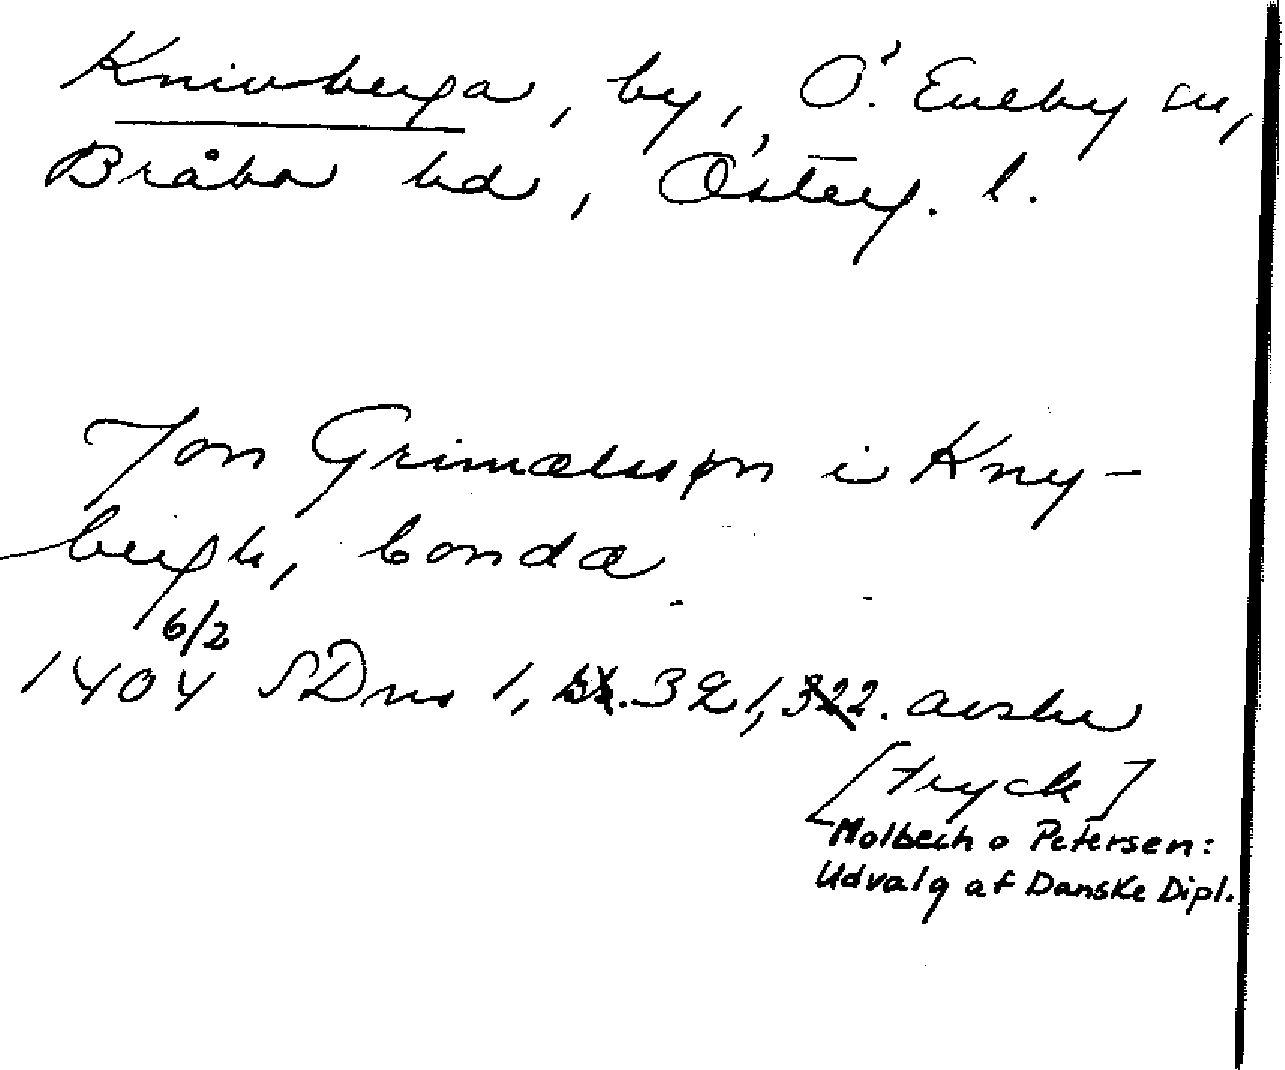 Knivberga, by, Ö. Eneby sn,
Bråbo hd, Österg. l.
Jon Grimælsson i Kny-
bergh, bonda
6/2
1404 SDns 1, 321, avskr
[tryck]
Molbech o Petersen:
Udvalg af Danske Dipl.